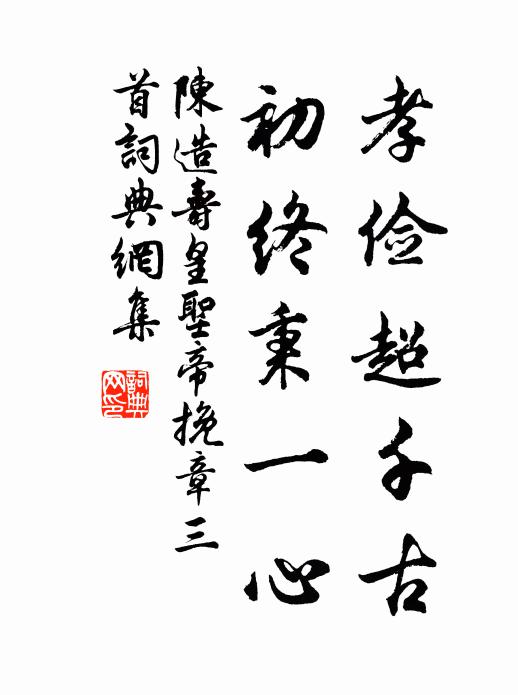 孝儉超千古
初終秉一心
陳造壽皇聖帝挽章三
首詞典網集
詞典網印